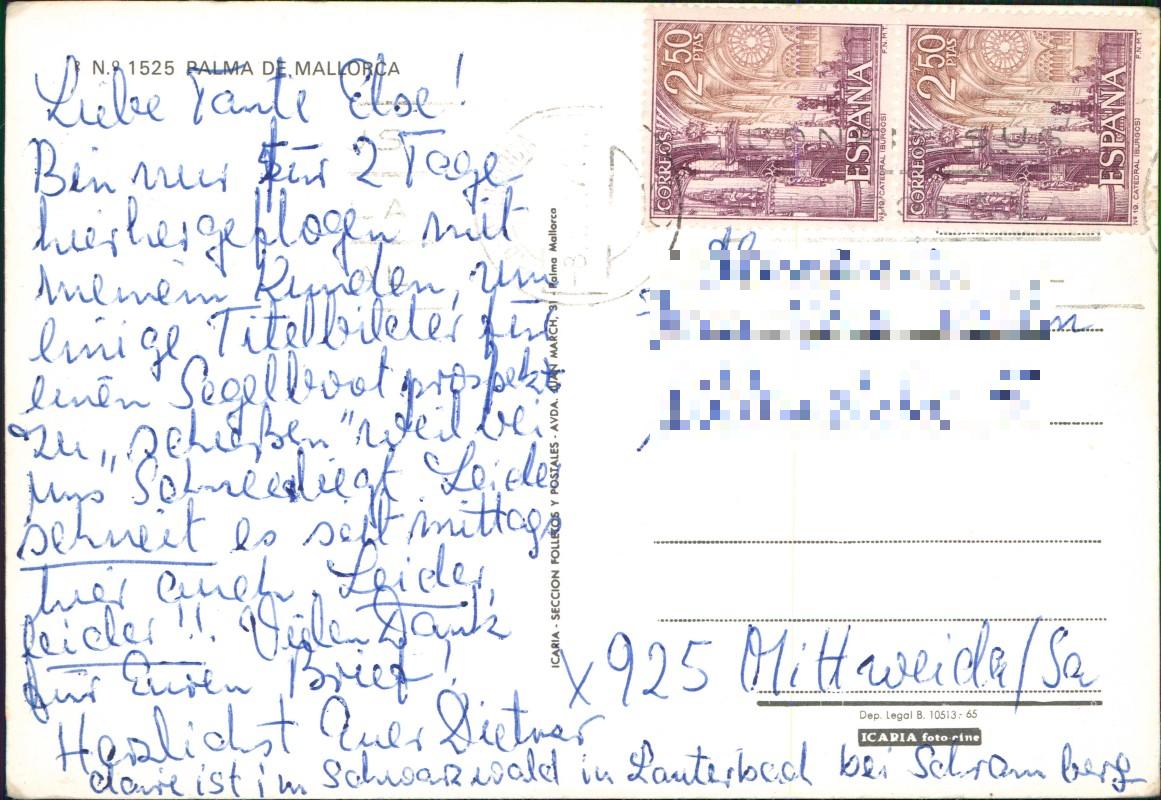 N.º 1525 PALMA DE MALLORCA
Liebe Tante Else!
Bin nur für 2 Tage
hierhergeflogen mit
meinem Kunden, um
einige Titelbilder für
einen Segelbootprospekt
zu „schießen" weil bei
uns Schnee liegt. Leider
schneit es seit mittags
hier auch. Leider,
leider!!! Vielen Dank
für Euren Brief!
Herzlichst Euer Dietmar
claire ist im Schwarzwald in Lauterbad bei Schramberg
ICARIA - SECCION FOLLETOS Y POSTALES - AVDA. JUAN MARCH, 31 - Palma Mallorca
2'50 PTAS
CORREOS
ESPAÑA
Nº 19. CATEDRAL (BURGOS)
F.N.M.T.
2'50 PTAS
CORREOS
ESPAÑA
Nº 19. CATEDRAL (BURGOS)
F.N.M.T.
X 925 Mittweida/Sa
Dep. Legal B. 10513 - 65
ICARIA foto-cine